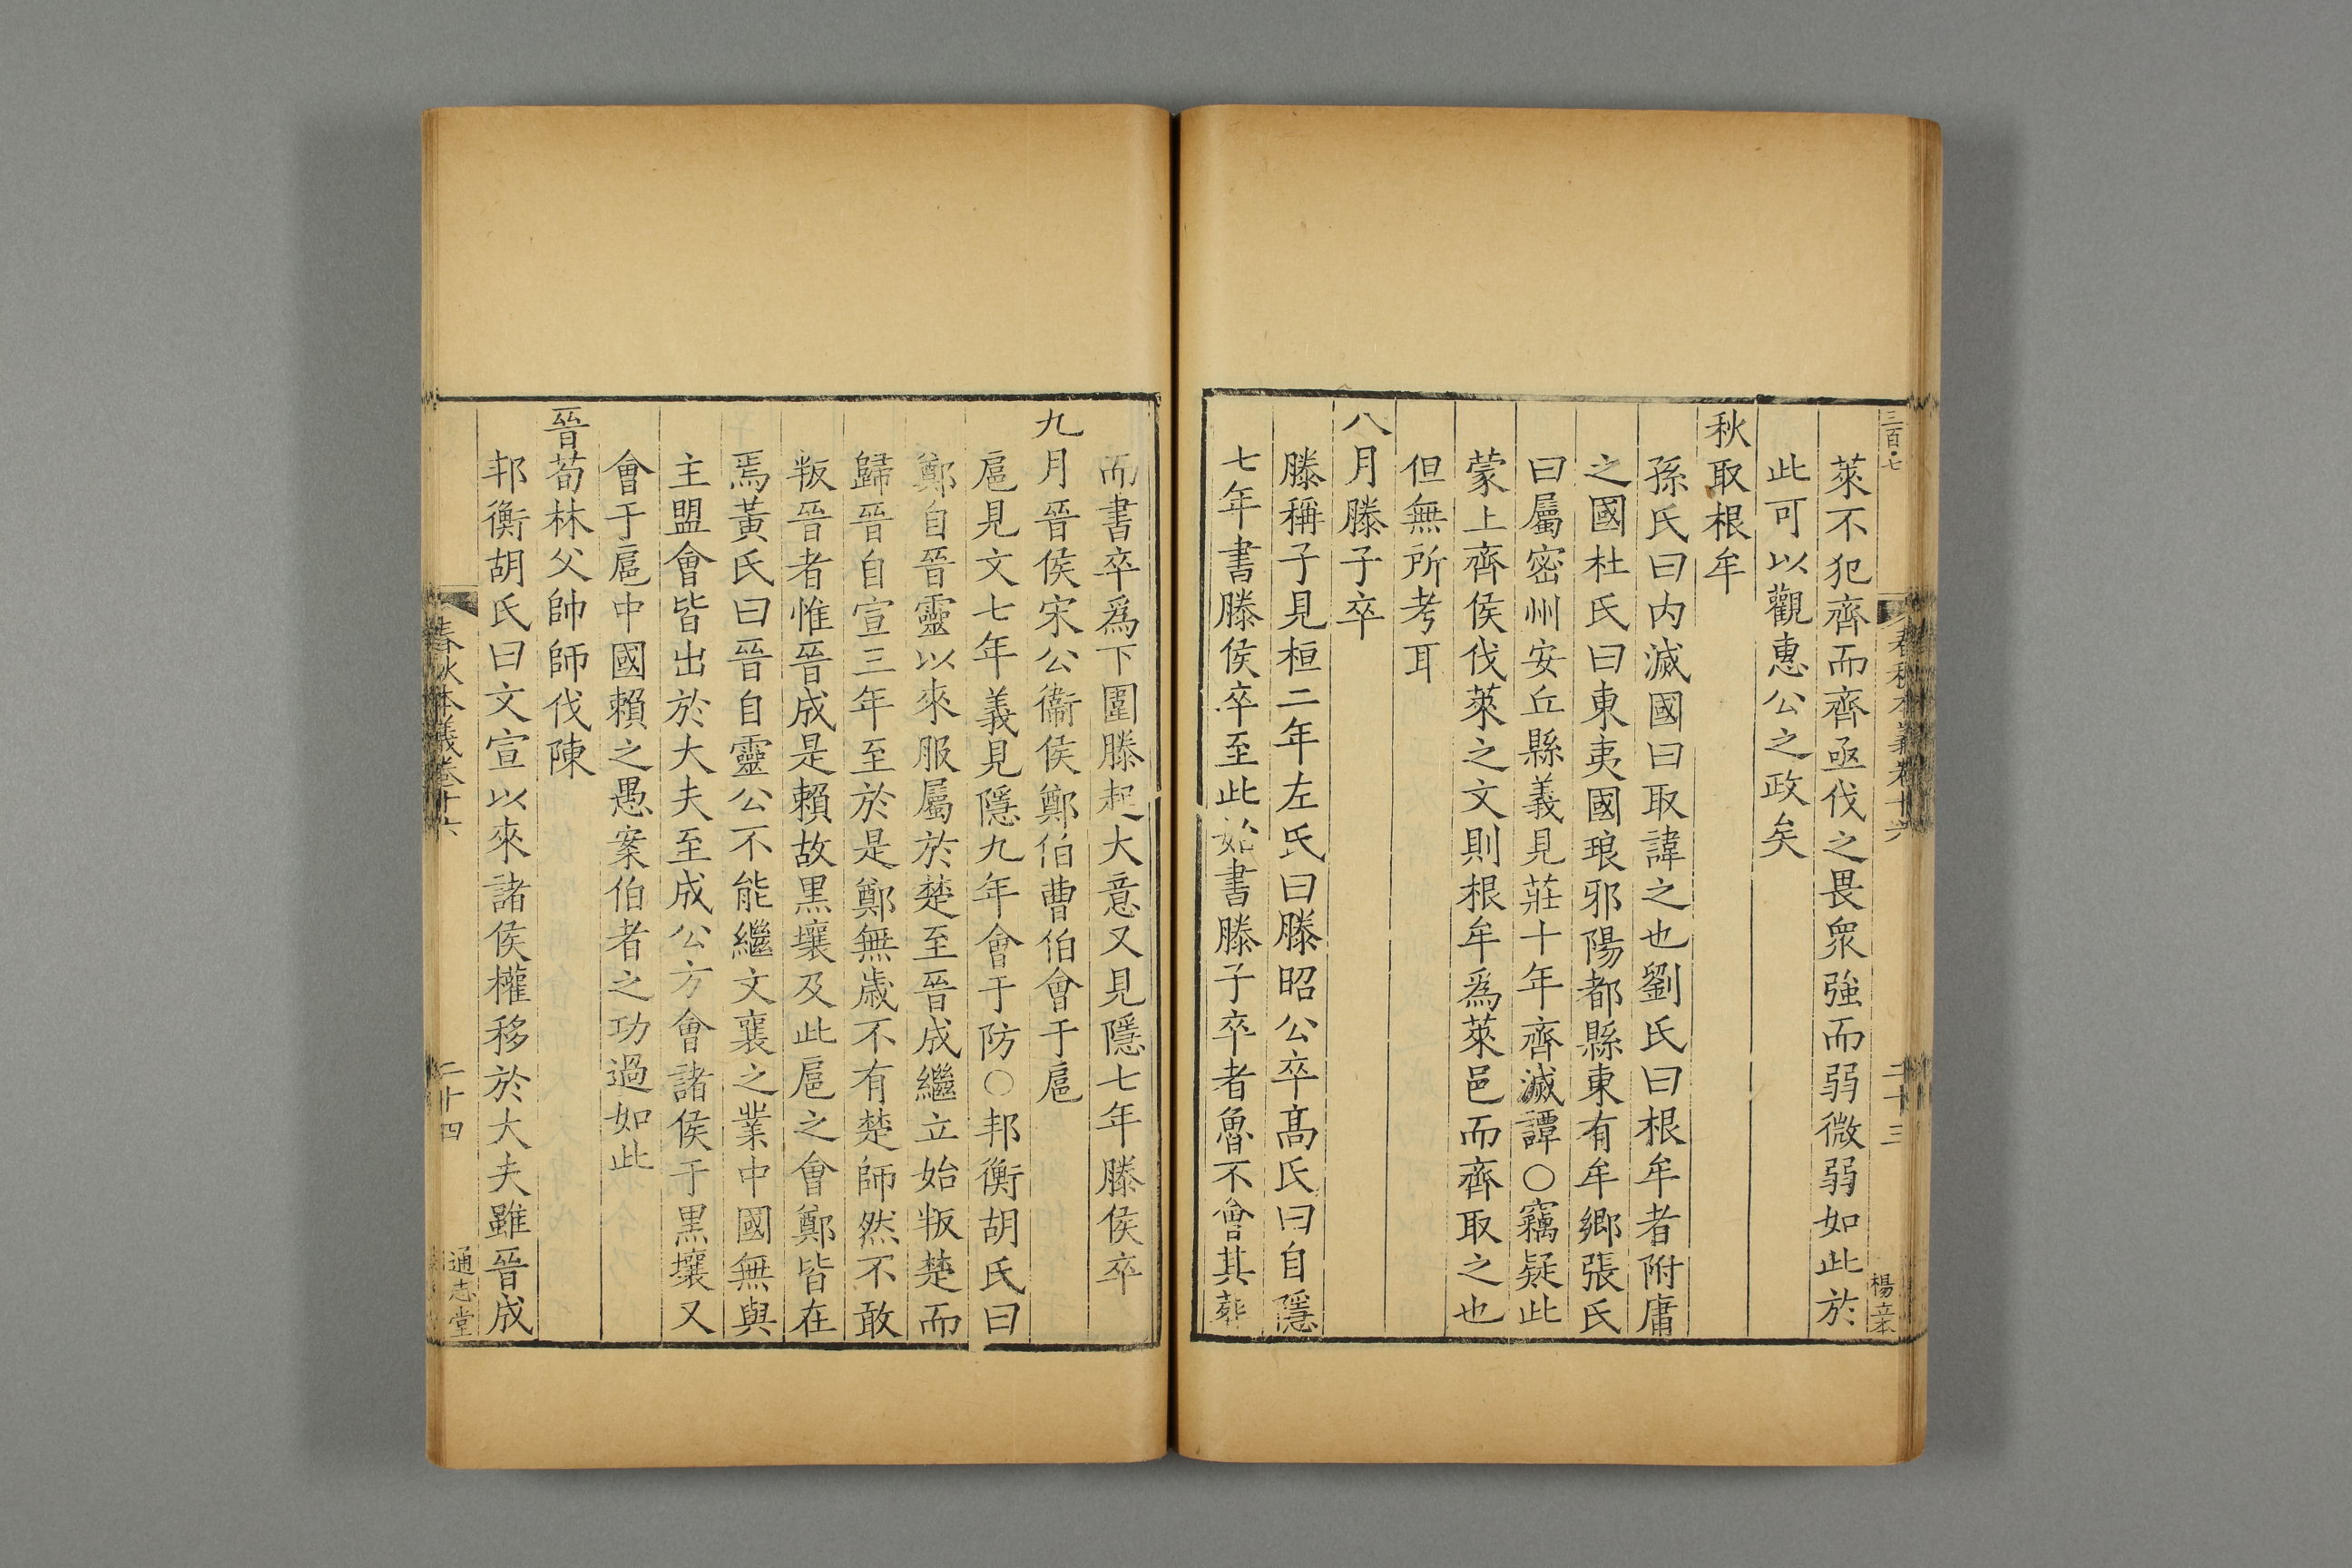 三百七
春秋本義卷十六
二十三
楊
萊不犯齊而齊亟伐之畏衆強而弱微弱如此於
此可以觀惠公之政矣
秋取根牟
孫氏曰内滅國曰取諱之也劉氏曰根牟者附庸
之國杜氏曰東夷國琅邪陽都縣東有牟鄉張氏
曰屬密州安丘縣義見莊十年齊滅譚○竊疑此
蒙上齊侯伐萊之文則根牟爲萊邑而齊取之也
但無所考耳
八月滕子卒
滕稱子見桓二年左氏曰滕昭公卒髙氏曰自隱
七年書滕侯卒至此始書滕子卒者魯不會其葬
而書卒爲下圍滕起大意又見隱七年滕侯卒
九月晉侯宋公衞侯鄭伯曹伯會于扈
扈見文七年義見隱九年會于防○邦衡胡氏曰
鄭自晉靈以來服屬於楚至晉成繼立始叛楚而
歸晉自宣三年至於是鄭無歲不有楚師然不敢
叛晉者惟晉成是賴故黒壤及此扈之會鄭皆在
焉黃氏曰晉自靈公不能繼文襄之業中國無與
主盟會皆出於大夫至成公方會諸侯于黒壤又
會于扈中國賴之愚案伯者之功過如此
晉荀林父帥師伐陳
邦衡胡氏曰文宣以來諸侯權移於大夫雖晉成
春秋本義卷十六
二十四
通志堂